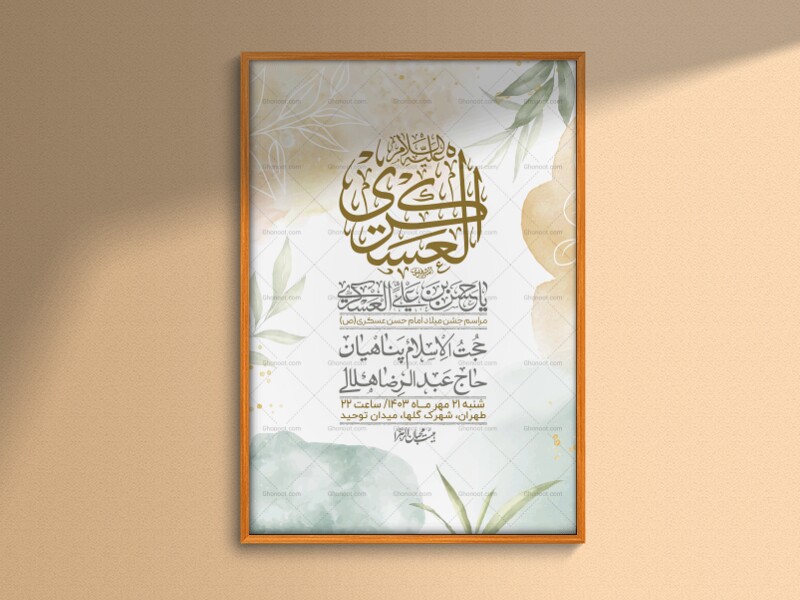 العسكري
عليه السلام
یا حسن بن علی العسکری
مراسم جشن میلاد امام حسن عسکری(ص)
حجت الاسلام پناهیان
حاج عبدالرضا هلالی
شنبه ۲۱ مهر ماه ۱۴۰۳/ ساعت ۲۲
طهران، شهرک گلها، میدان توحید
Ghonoot.com